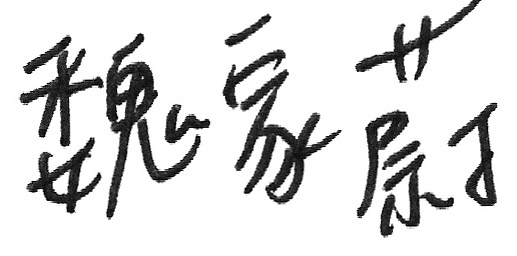 魏家蔚